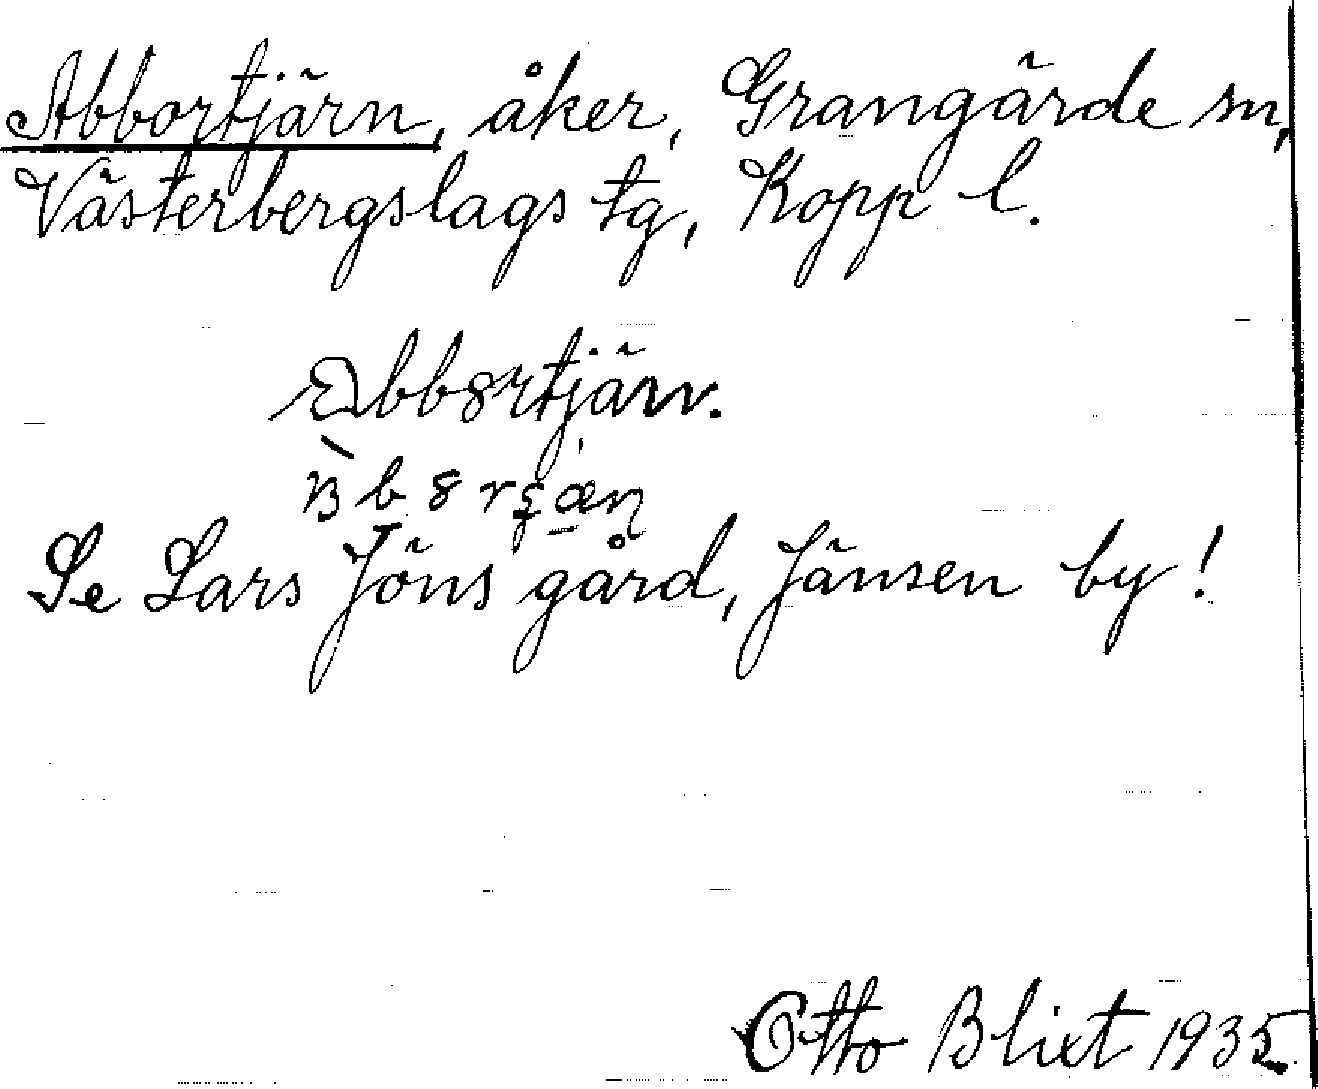 Abbortjärn, åker, Grangärde sn,
Västerbergslags tg, Kopp l.
Abb8rtjärn.
Se Lars Jöns gård, Jänsen by!
Otto Blixt 1935